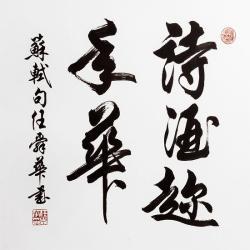 詩酒趁
年華
蘇軾句任舜華書